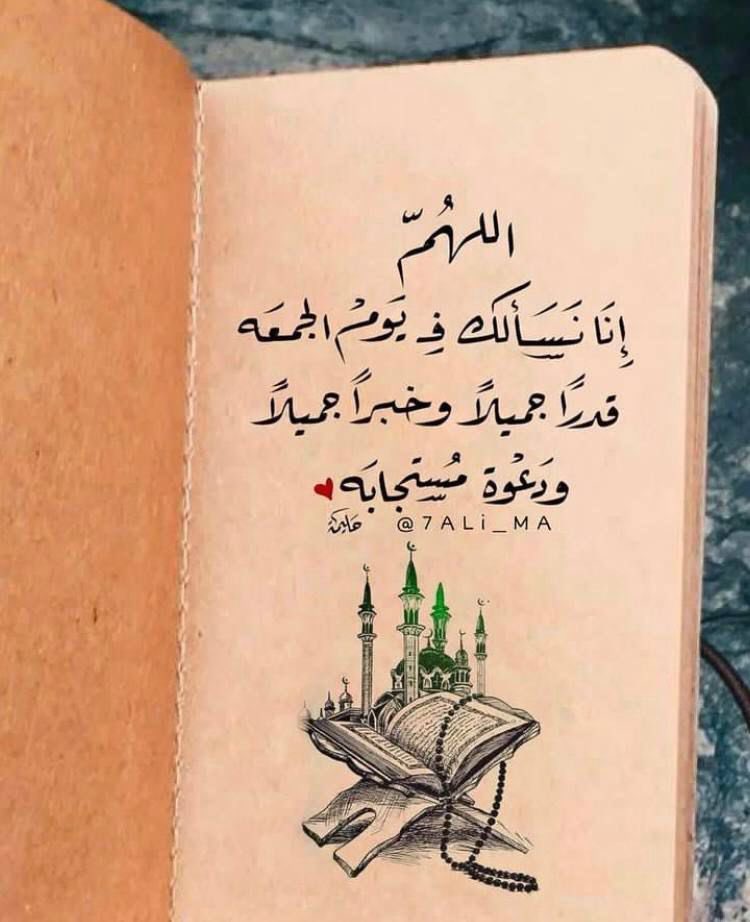 اللهُمّ
إِنَا نَسَألك في يَومْ الجمعَه
قدرًا جميلاً وخبراً جميلاً
ودَعْوة مُستجابَه
حَليمَة @7ALi_MA